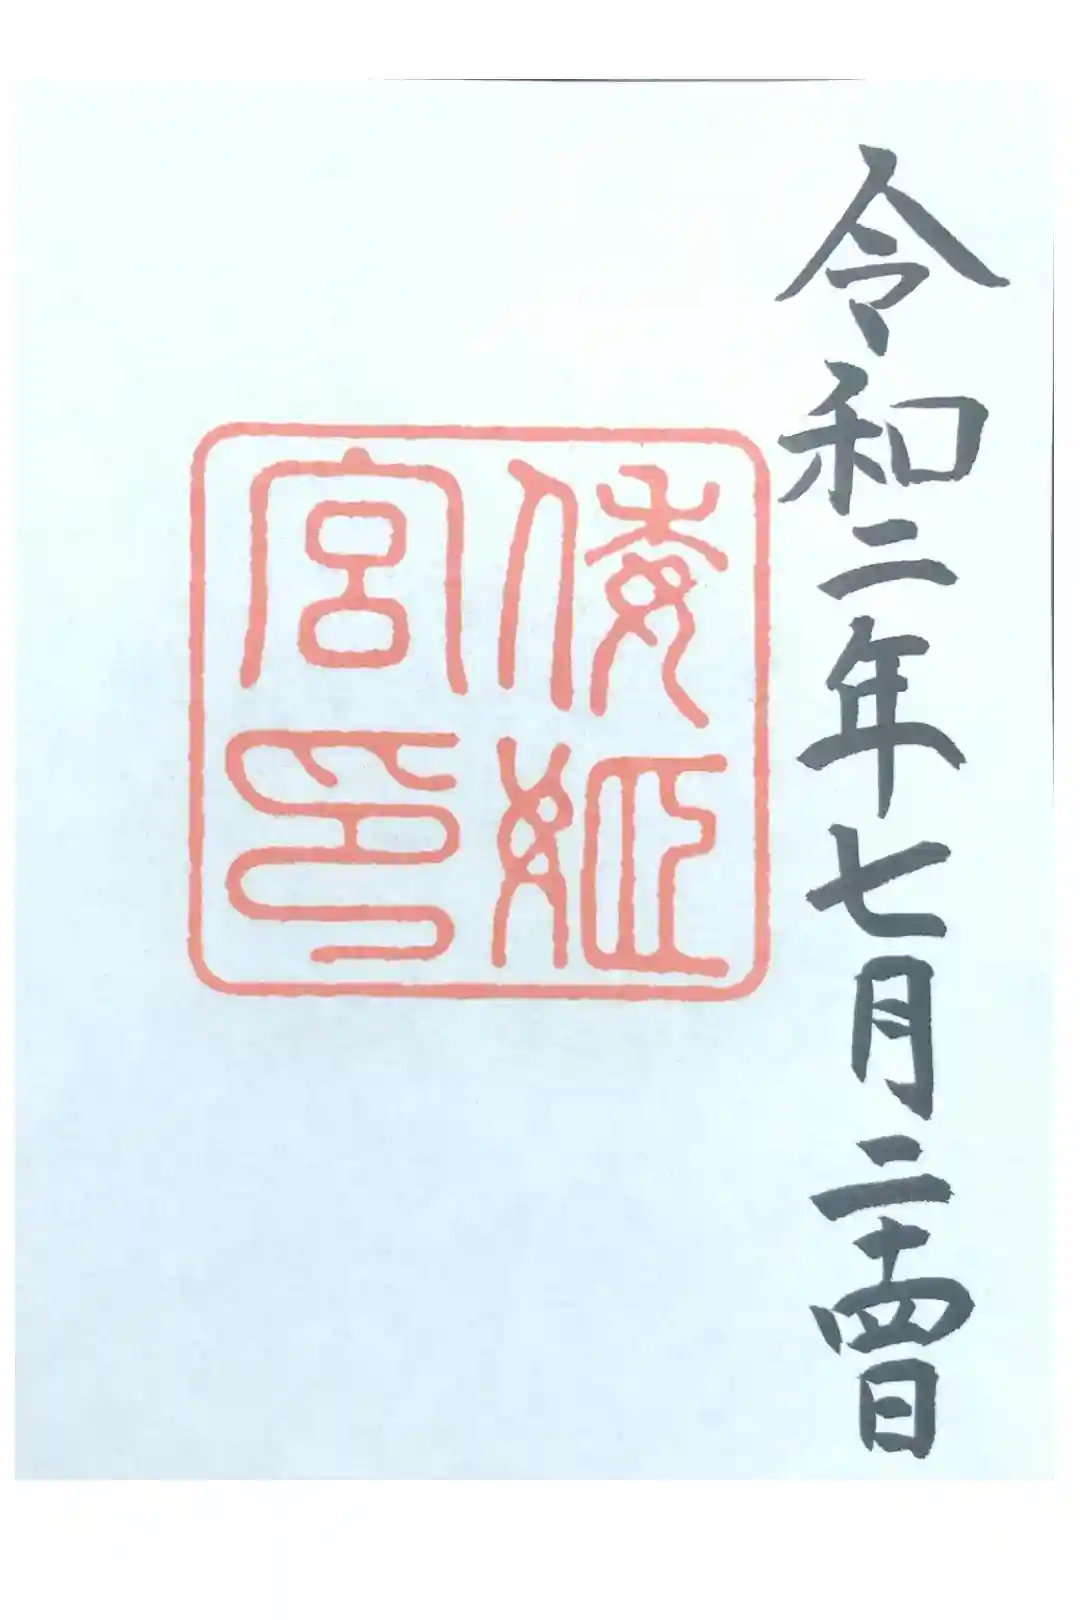 令和二年七月二十四日
倭姫
宮印